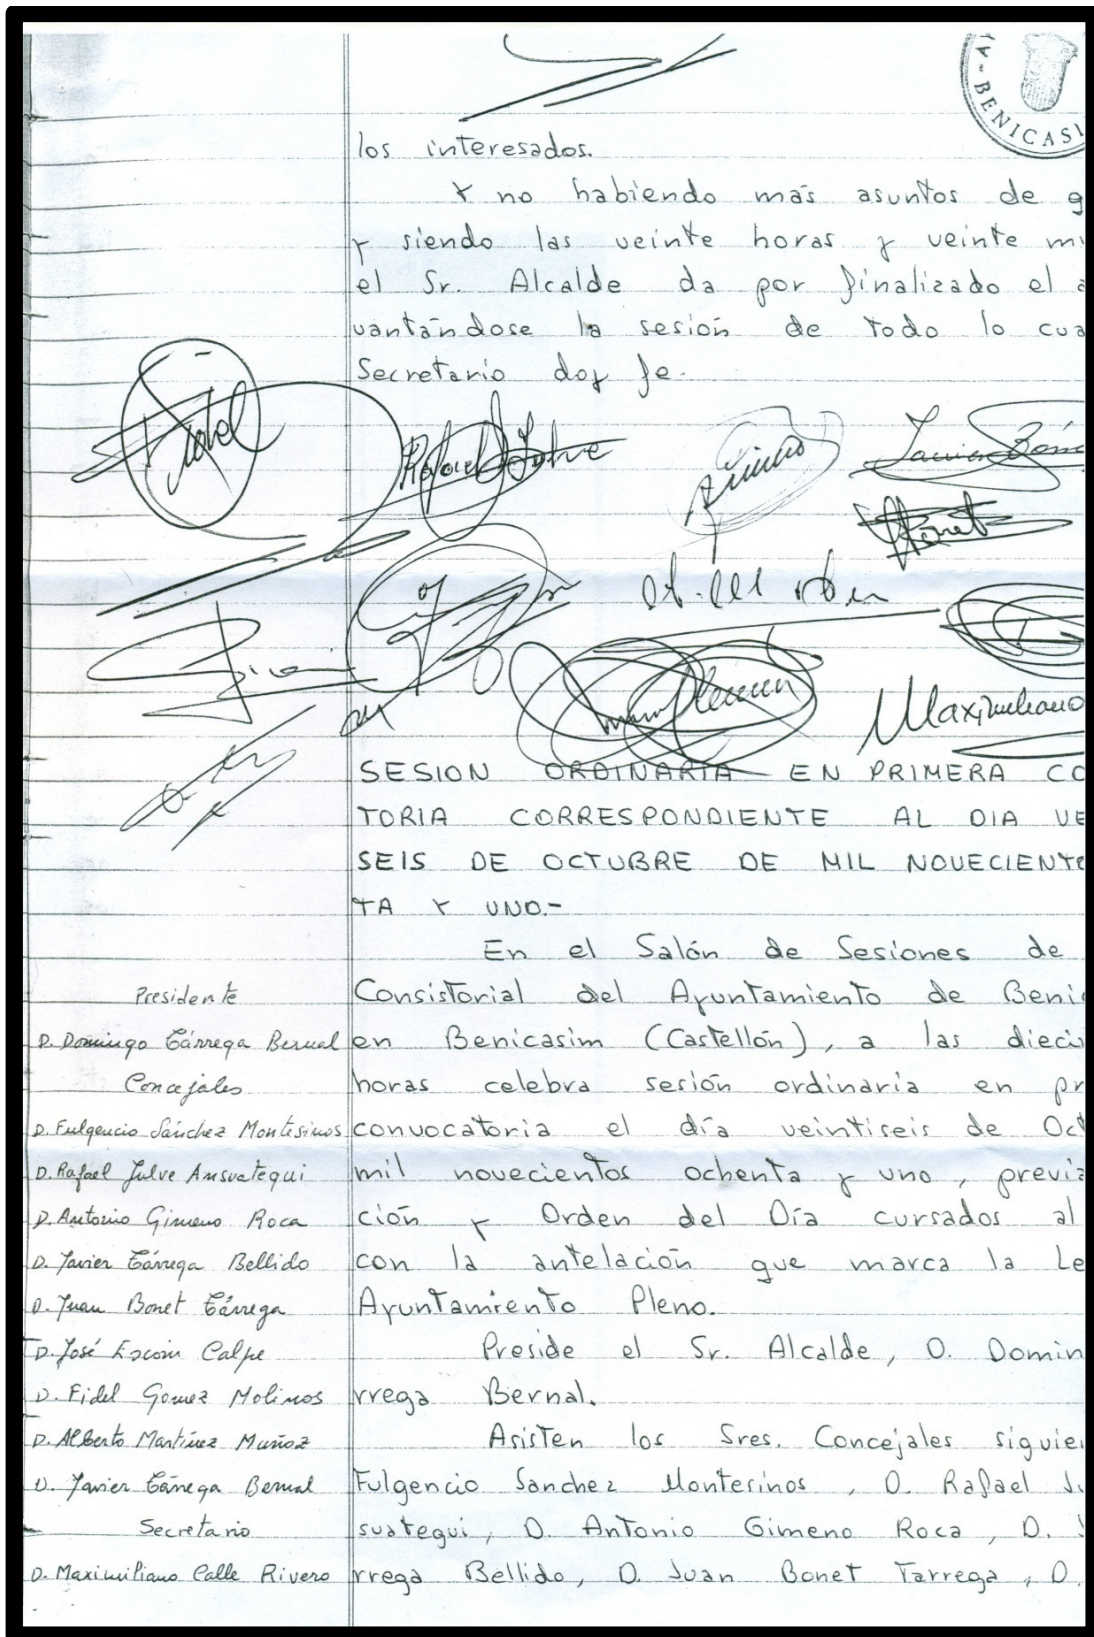 BENICASI
los interesados.
Y no habiendo más asuntos de g
y siendo las veinte horas y veinte mi
el Sr. Alcalde da por finalizado el a
vantándose la sesión de todo lo cua
Secretario doy fe.
Fidel
Rafael Julve
Gimeno
Javier
JBonet
Maximiliano
SESION ORDINARIA EN PRIMERA CO
TORIA CORRESPONDIENTE AL DIA VE
SEIS DE OCTUBRE DE MIL NOVECIENTO
TA Y UNO.-
En el Salón de Sesiones de
Consistorial del Ayuntamiento de Benic
en Benicasim (Castellón), a las dieci
horas celebra sesión ordinaria en pr
convocatoria el día veintiseis de Oct
mil novecientos ochenta y uno, previa
ción y Orden del Día cursados al
con la antelación que marca la Le
Ayuntamiento Pleno.
Preside el Sr. Alcalde, D. Domin
rrega Bernal.
Asisten los Sres. Concejales siguien
Fulgencio Sanchez Montesinos, D. Rafael Ju
suategui, D. Antonio Gimeno Roca, D. J
rrega Bellido, D. Juan Bonet Tarrega, D.
Presidente
D. Domingo Tárrega Bernal
Concejales
D. Fulgencio Sánchez Montesinos
D. Rafael Julve Ansuategui
D. Antonio Gimeno Roca
D. Javier Tárrega Bellido
D. Juan Bonet Tárrega
D. José Escoin Calpe
D. Fidel Gomez Molinos
D. Alberto Martínez Muñoz
D. Javier Tárrega Bernal
Secretario
D. Maximiliano Calle Rivero